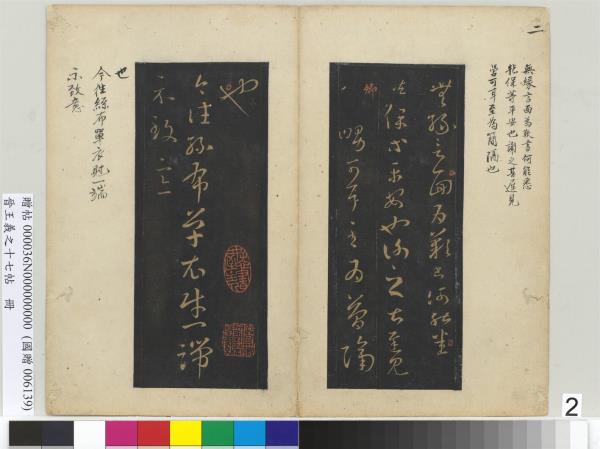 二
無緣言面為歎書何能悉
瞻保等平安也謝之甚遲見
卿可耳至為簡隔也
無緣言面為歎書何能悉
瞻保等平安也謝之甚遲見
卿可耳至為簡隔
也
今往絲布單衣財一端
示致意
也
今往絲布單衣財一端
示致意
贈帖 000036N000000000 (國贈 006139)
晉王羲之十七帖 冊
2